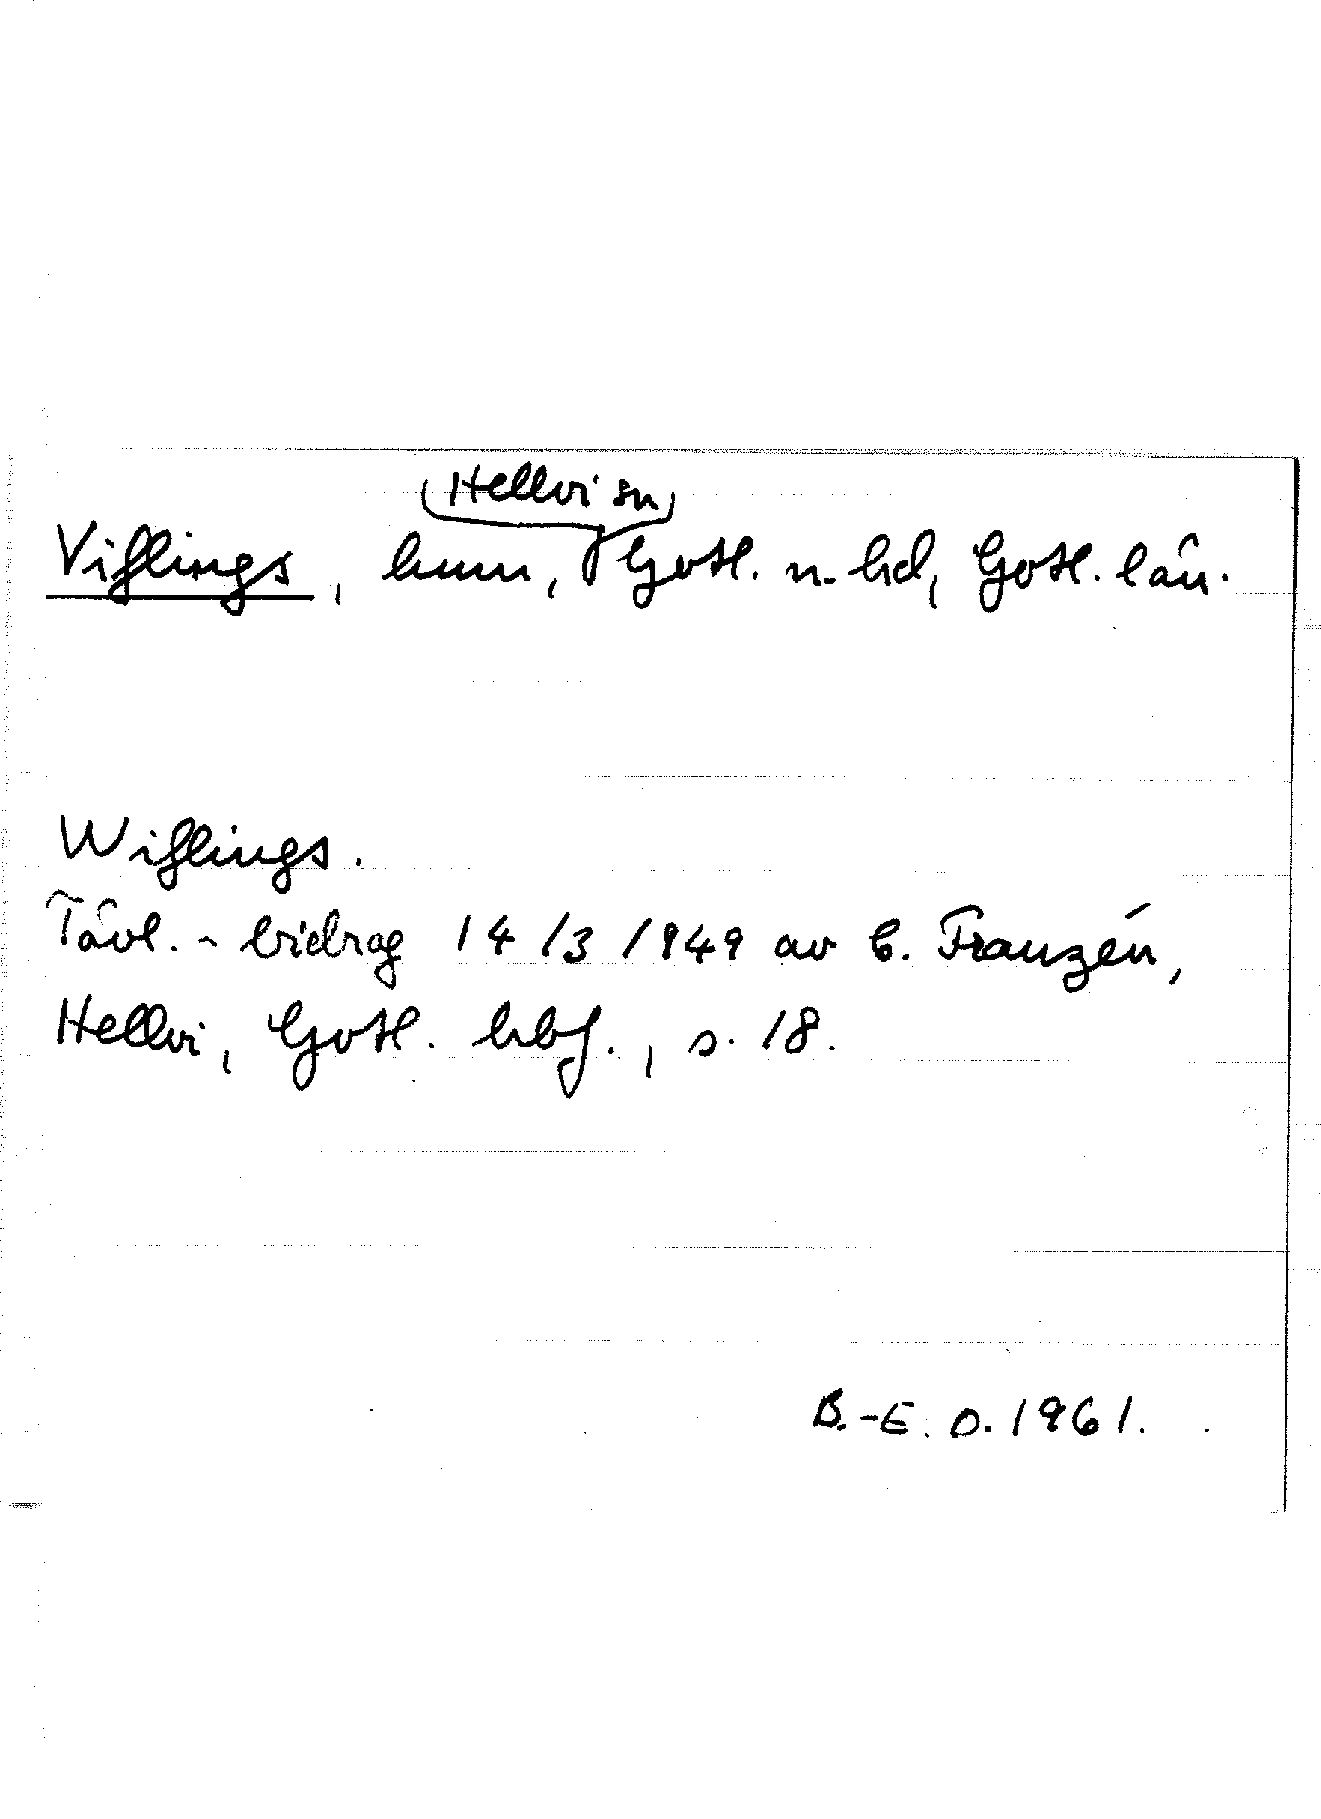 Hellvi sn
Viflings, hmn, Gotl. n. hd, Gotl. län.
Wiflings.
Tävl.-bidrag 14/3 1949 av B. Franzén,
Hellvi, Gotl. hbf., s. 18.
B.-E. O. 1961.